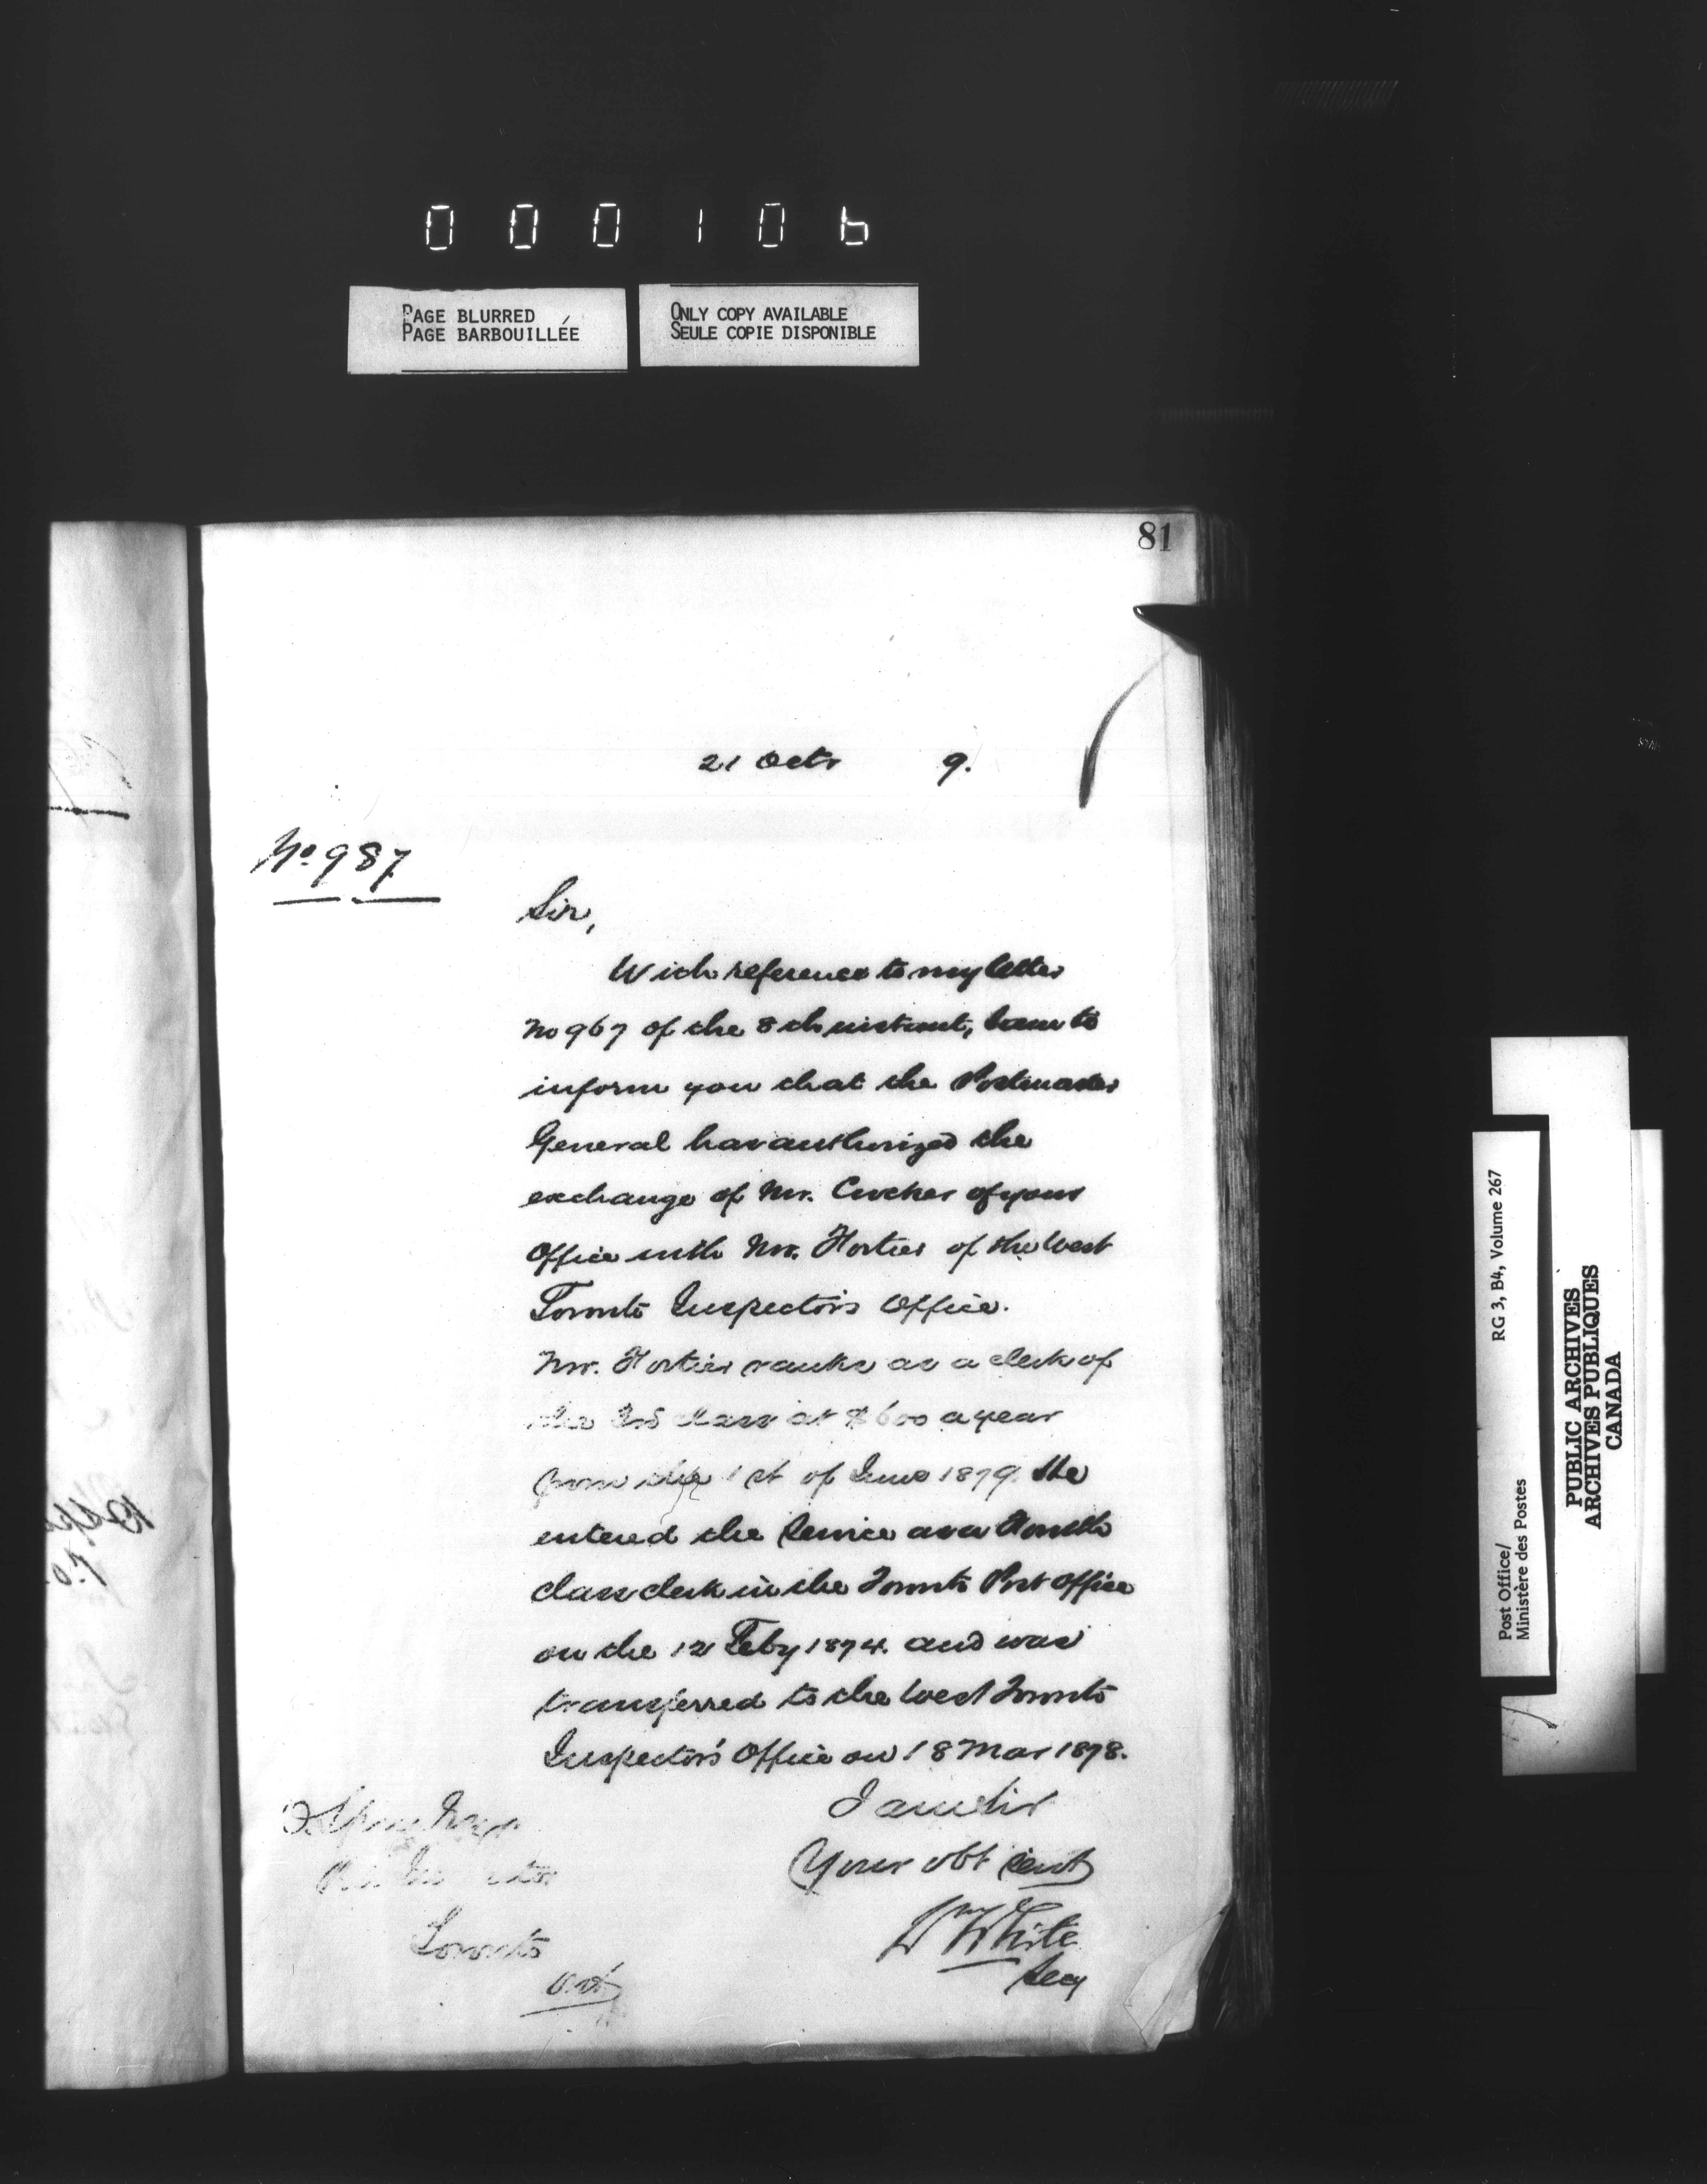 000106
PAGE BLURRED
PAGE BARBOUILLÉE
ONLY COPY AVAILABLE
SEULE COPIE DISPONIBLE
81
21 Octr 9.
No 987
Sir,
With reference to my letter
No 967 of the 8th instant, I am to
inform you that the Postmaster
General has authorized the
exchange of Mr. Crocker of your
Office with Mr. Hostier of the West
Toronto Inspector's Office.
Mr. Hostier ranks as a clerk of
the 3rd class at $600 a year
from the 1st of June 1879. He
entered the Service as a Fourth
class clerk in the Toronto Post Office
on the 12 Feby 1874. and was
transferred to the West Toronto
Inspector's Office on 18 Mar 1878.
I am Sir
Your obt servt
Wm White
Secy
Toronto
Ont
RG 3, B4, Volume 267
Post Office/
Ministère des Postes
PUBLIC ARCHIVES
ARCHIVES PUBLIQUES
CANADA